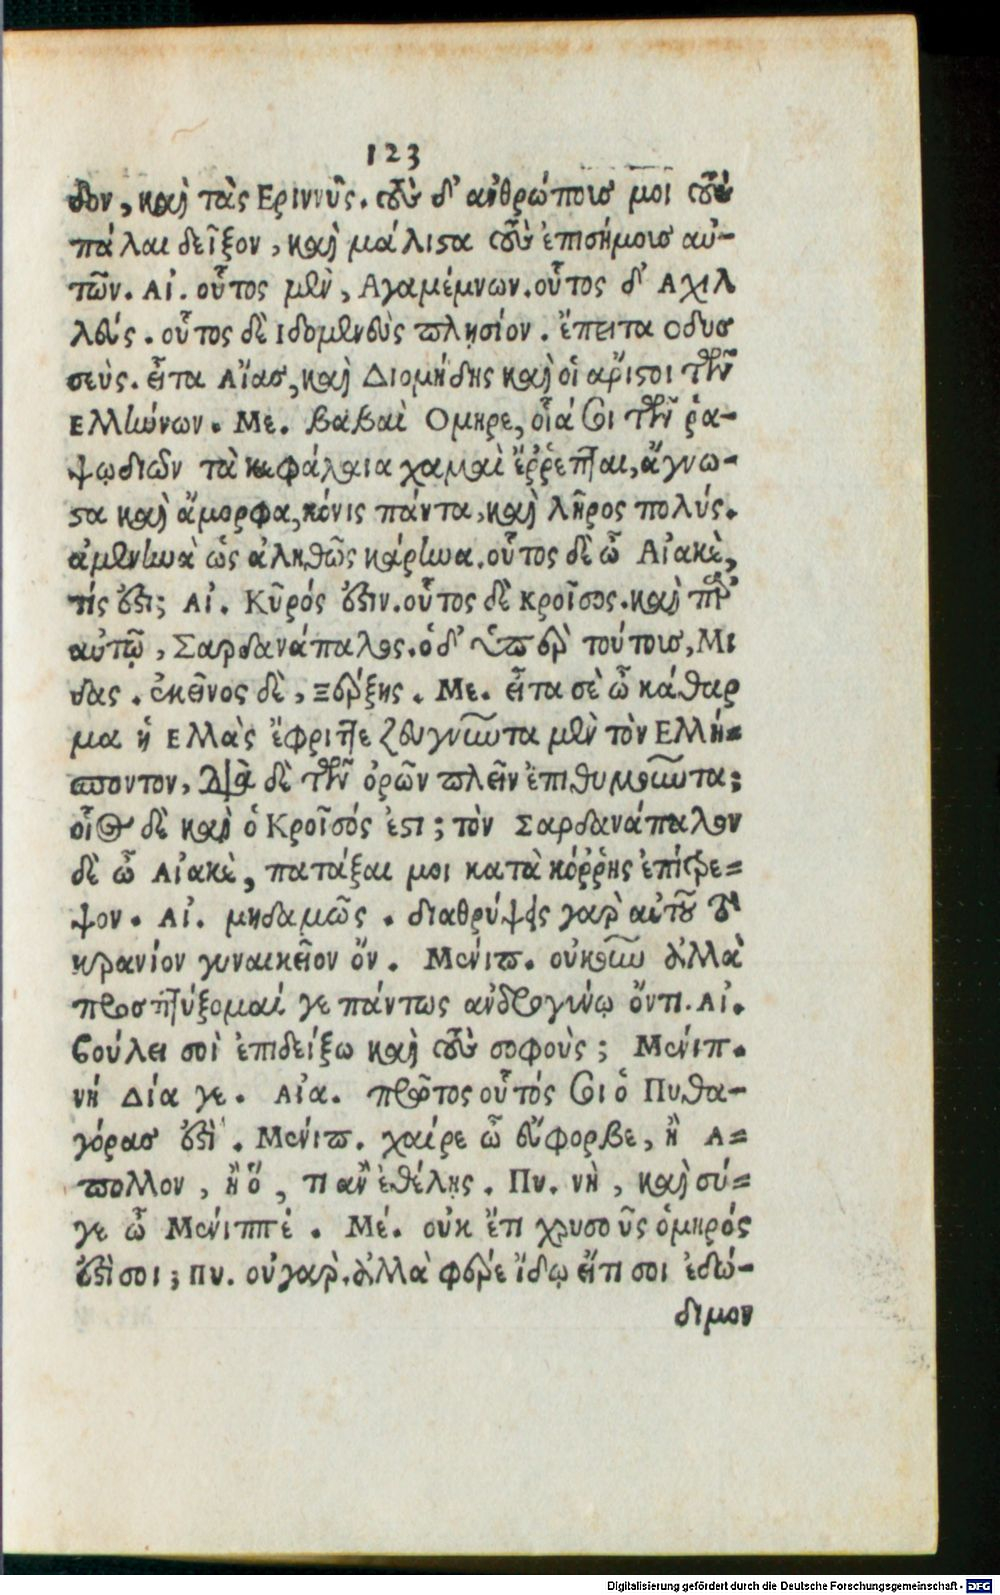 123
δον, καὶ τὰς Εριννῦς. τοὺς δ' ἀνθρώποις μοι τοὺς
πάλαι δεῖξον, καὶ μάλιστα τοὺς ἐπισήμοις αὐ-
τῶν. Αἰ. οὗτος μὲν, Αγαμέμνων. οὗτος δ' Αχιλ
λεύς. οὗτος δὲ Ιδομενεὺς πλησίον. ἔπειτα Οδυσ
σεύς. εἶτα Αἴας, καὶ Διομήδης καὶ οἱ ἄριστοι τῶν
Ελλήνων. Με. βαβαὶ Ομηρε, οἷά σοι τῶν ῥα-
ψῳδιῶν τὰ κεφάλαια χαμαὶ ἔῤῥεπται, ἄγνω-
στα καὶ ἄμορφα, κόνις πάντα, καὶ λῆρος πολύς.
ἀμενηνὰ ὡς ἀληθῶς κάρηνα. οὗτος δὲ ὦ Αἰακὲ,
τίς ἐστι; Αἰ. Κῦρός ἐστιν. οὗτος δὲ Κροῖσος. καὶ παρ'
αὐτῷ, Σαρδανάπαλος. ὁ δ' ὑπὲρ τούτοις, Μι
δας. ἐκεῖνος δὲ, Ξέρξης. Με. εἶτα σὲ ὦ κάθαρ
μα ἡ Ελλὰς ἔφριττε ζευγνῦντα μὲν τὸν Ελλή-
σποντον, διὰ δὲ τῶν ὀρῶν πλεῖν ἐπιθυμοῦντα;
οἷος δὲ καὶ ὁ Κροῖσός ἐστι; τὸν Σαρδανάπαλον
δὲ ὦ Αἰακὲ, πατάξαι μοι κατὰ κόῤῥης ἐπίτρε-
ψον. Αἰ. μηδαμῶς. διαθρύψεις γὰρ αὐτοῦ τὸ
κρανίον γυναικεῖον ὄν. Μένιπ. οὐκοῦν ἀλλὰ
προσπτύξομαί γε πάντως ἀνδρογύνῳ ὄντι. Αἰ.
βούλει σοὶ ἐπιδείξω καὶ τοὺς σοφούς; Μένιπ.
νὴ Δία γε. Αἰα. πρῶτος οὗτός σοι ὁ Πυθα-
γόρας ἐστὶ. Μένιπ. χαίρε ὦ Εὔφορβε, ἢ Α-
πολλον, ἢ ὅ, τι ἂν ἐθέλῃς. Πυ. νὴ, καὶ σύ-
γε ὦ Μένιππέ. Μέ. οὐκ ἔτι χρυσοῦς ὁ μηρός
ἐστὶ σοι; Πυ. οὐ γὰρ. ἀλλὰ φέρε ἴδω εἴ τι σοι ἐδώ-
διμον
Digitalisierung gefördert durch die Deutsche Forschungsgemeinschaft - DFG